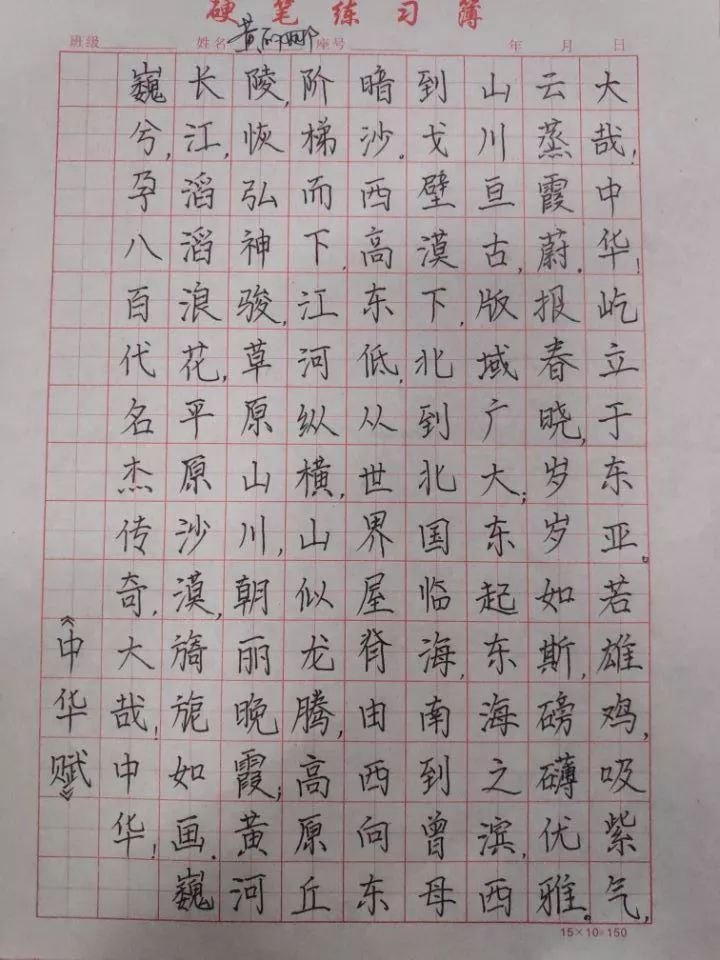 硬笔练习簿
班级 姓名 座号 年 月 日
大哉!中华!屹立于东亚。若雄鸡,吸紫气,
云蒸霞蔚.报春晓,岁岁如斯,磅礴优雅。
山川亘古,版域广大;东起东海之滨,西
到戈壁漠下.北到北国临海,南到曾母
暗沙。西高东低,从世界屋脊,由西向东
阶梯而下.江河纵横,山似龙腾,高原丘
陵,恢弘神骏,草原山川,朝丽晚霞;黄河
长江,滔滔浪花,平原沙漠,旖旎如画.巍
巍兮,孕八百代名杰传奇,大哉!中华!
《中华赋》
15×10=150